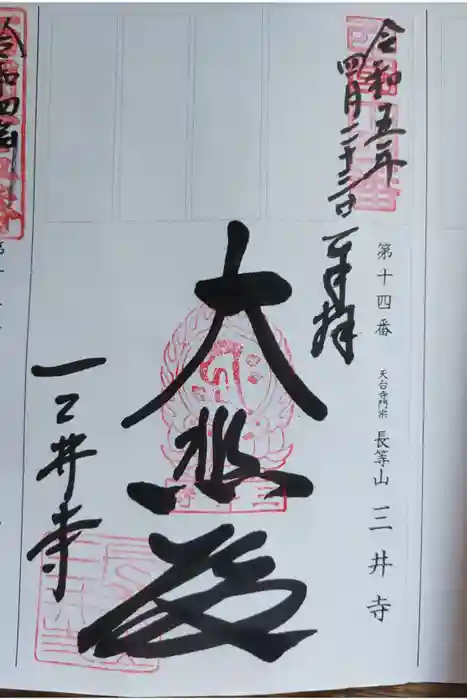 令和五年
四月二十三日
奉拝
第十四番 天台寺門宗 長等山 三井寺
大悲殿
三井寺
令和四年